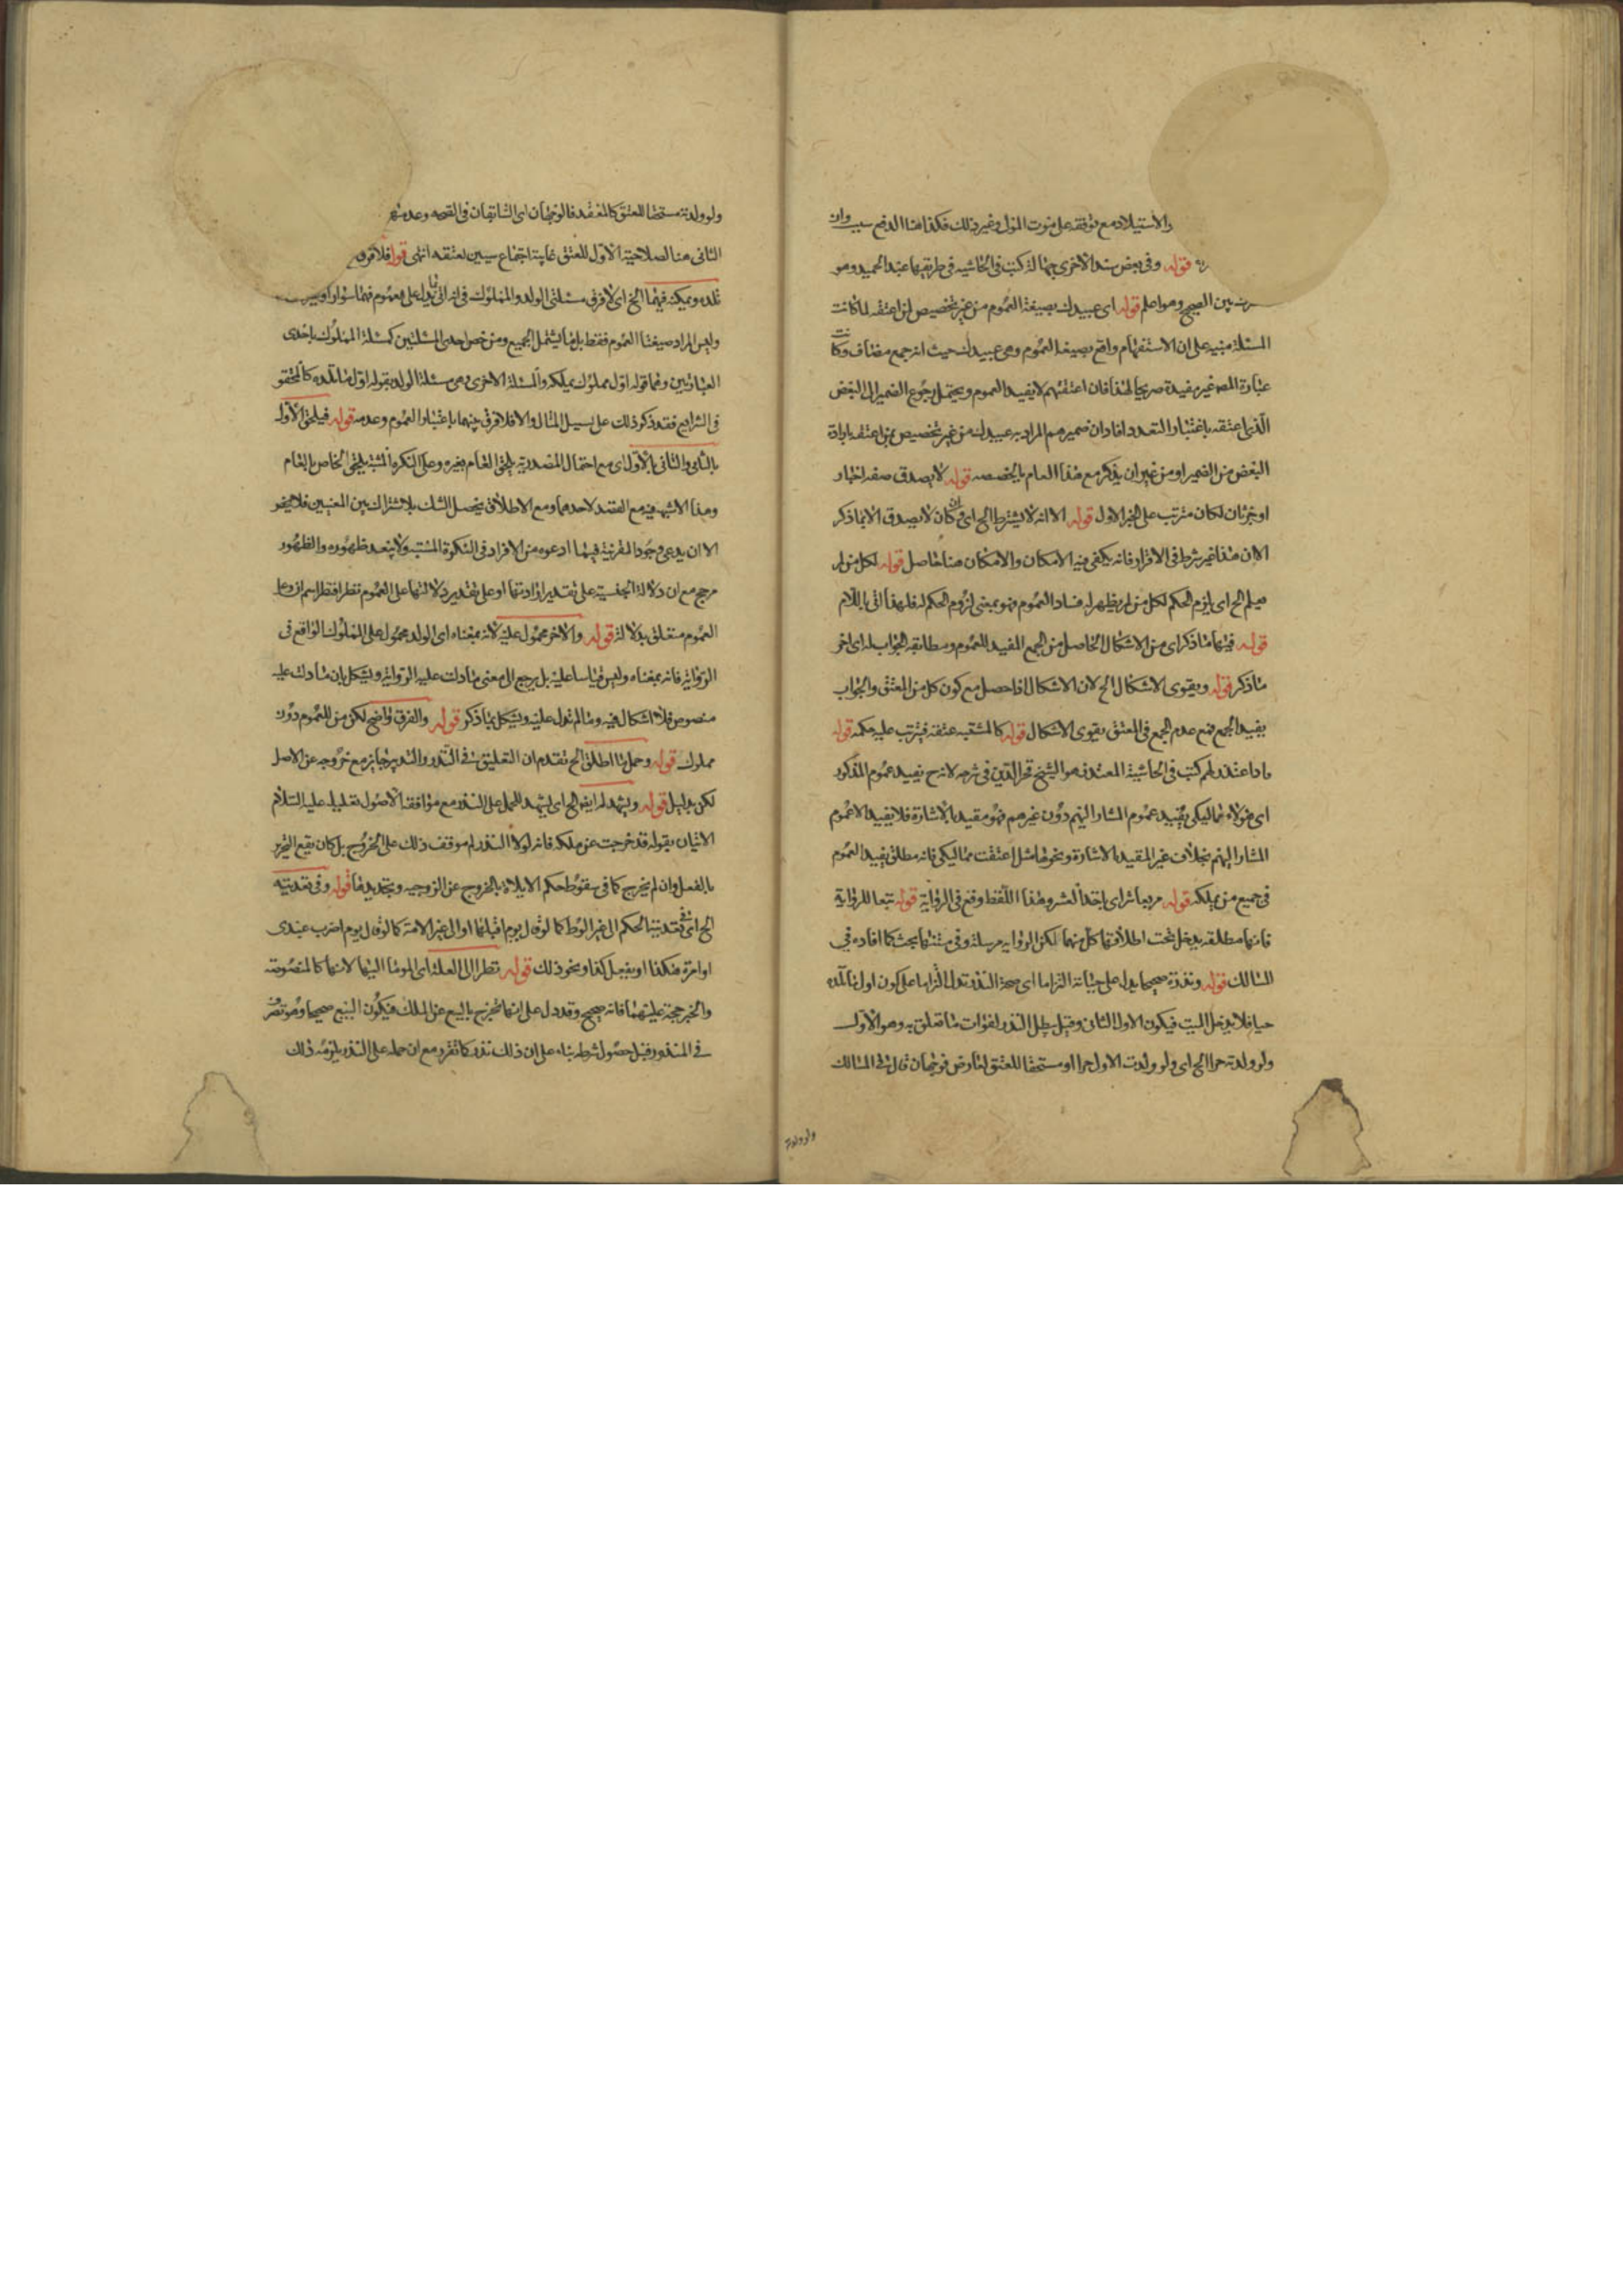 والاستيلاد مع توقفه على موت المولى وغير ذلك فكذا هنا الدفع سبب وان
قوله وفي بعض سند الاخرى جهالة كتب في الحاشية في طريقها عبد الحميد وهو
بين الصحيح وهو اعلم قوله اى عبيدك بصيغة العموم من غير تخصيص لمن اعتقه لما كانت
المسئلة مبنية على ان الاستفهام واقع بصيغة العموم وهى عبيدك حيث انه جمع مضاف وكانت
عبارة المصـ غير مفيدة صريحا لهذا فان اعتقتهم لا يفيد العموم ويحتمل رجوع الضمير الى البعض
الذى اعتقه باعتبار التعدد افاد ان ضميرهم المراد به عبيدك من غير تخصيص بمن اعتقه بارادة
البعض من الضمير او من غير ان يذكر مع هذا العام ما يخصصه قوله لا يصدق صفة اخبار
او خبر ثان لكان مترتب على الخبر الاول قوله الا انه لا يشترط الخ اى وان كان لا يصدق الا بما ذكر
الا ان هذا غير شرط في الاقرار فانه يكفى فيه الامكان والامكان هنا حاصل قوله لكل من لم
يعلم الخ اى يلزم الحكم لكل من لم يظهر له فساد العموم فهو بمعنى لزوم الحكم له فلهذا اتى باللام
قوله فيهما ما ذكر اى من الاشكال الحاصل من الجمع المفيد للعموم ومطابقة الجواب له اى اخر
ما ذكر قوله ويقوى الاشكال الخ لان الاشكال اذا حصل مع كون كل من المعتق والجواب
يفيد الجمع فمع عدم الجمع في المعتق يقوى الاشكال قوله كالمشتبه عتقه فيترتب عليه حكمه قوله
ما داعتذر لهم كتب في الحاشية المعتذر هو الشيخ فخر الدين في شرحه لانه ح يفيد عموم المذكور
اى هؤلاء مماليكى يفيد عموم المشار اليهم دون غيرهم فهو مقيد بالاشارة فلا يفيد الا عموم
المشار اليهم بخلاف غير المقيد بالاشارة ونحوها مثل اعتقت مماليكى فانه مطلق يفيد العموم
في جميع من يملكه قوله مر بها شراى باحد العشر وهذا اللفظ وقع في الرواية قوله تبعا للرواية
فانها مطلقة يدخل تحت اطلاقها كل منهما لكن الرواية مرسلة وفى متنها بحث كما افاده في
المسالك قوله ونذره صحيحا يدل على حياته التزاما اى صحة النذر تدل التزاما على كون اول ما تلده
حيا فلا يدخل الميت فيكون الاول الثانى وقيل يبطل النذر لفوات ما تعلق به وهو الاول
ولو ولدته حرا الخ اى ولو ولدت الاول حرا او مستحقا للعتق لعارض فوجهان قال في المسالك
ولو ولدته
ولو ولدته مستحقا للعتق كالمقعد فالوجهان اى السابقان في الصحة وعدمها
الثانى هنا لصلاحية الاول للعتق غايته اجتماع سببين لعتقه انتهى قوله فلا فرق
تلده ويمكنه فيهما الخ اى لا فرق مسئلتى الولد والمملوك في انه اتى بما يدل على العموم فهما سواء او غيره
وليس المراد صيغتا العموم فقط بل ما يشمل الجميع ومن خص احدى المسئلتين كمسئلة المملوك باحدى
العبارتين وهما قوله اول مملوك يملكه والمسئلة الاخرى وهى مسئلة الولد بقوله اول ما تلده كالمحقق
في الشرايع فقد ذكر ذلك على سبيل المثال والا فلا فرق بينهما باعتبار العموم وعدمه قوله فيلحق الاول
بالثانى والثانى بالاول اى مع احتمال المصدرية يلحق العام بغيره وعلى النكرة المثبتة يلحق الخاص بالعام
وهذا الاشبه فيه مع القصد لاحدهما ومع الاطلاق يحصل الشك بلاشتراك بين المعنيين فلا يخفى
الا ان يدعى وجود القرينة فيهما ادعوه من الافراد في النكرة المثبتة ولا يبعد ظهوره والظهور
مرجح مع ان دلالة الجنسية على تقدير ارادتها او على تقدير دلالتها على العموم نظرا فنظرا اسم ان وعلى
العموم متعلق بدلالة قوله والاخر محمول عليه لانه بمعناه اى الولد محمول على المملوك الواقع في
الرواية فانه بمعناه وليس قياسا عليه بل يرجع الى معنى ما دلت عليه الرواية ويشكل بان ما دلت عليه
منصوص فلا اشكال فيه وما لم تدل عليه ويشكل بما ذكر قوله والفرق واضح لكن من للعموم دون
مملوك قوله وحمل ما اطلق الخ تقدم ان التعليق في النذر والتدبير جايز مع خروجه عن الاصل
لكن بدليل قوله ويشهد له ايضا الخ اى يشهد للحمل على النذر مع موافقة الاصول تعليله عليه السلام
الاتيان بقوله قد خرجت عن ملكه فانه لولا النذر لم موقف ذلك على الخروج بل كان يقع التحرير
بالفعل وان لم يخرج كما في سقوط حكم الايلاء بالخروج عن الزوجية وتجديدها قوله وفى تعديته
الخ اى في تعديته الحكم الى غير الوطء كما لو قال يوم اقبلها او الى غير الامة كما لو قال يوم اضرب عبدى
او امره هكذا او يفعل كذا ونحو ذلك قوله نظرا الى العلة اى المومأ اليها لانها كالمنصوصة
والخبر حجة عليهما فانه صحيح وقد دل على انها تخرج بالبيع عن الملك فيكون البيع صحيحا وهو تصرف
في المنذور قبل حصول شرطه بناء على ان ذلك نذر كما تقرر مع ان حمله على النذر يلزمه ذلك